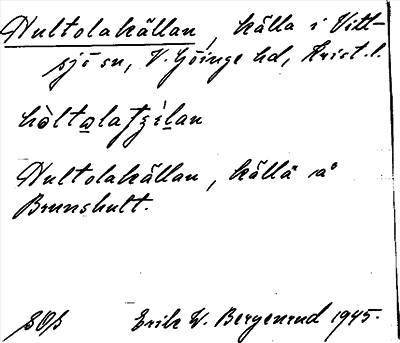 Hultolakällan, källa i Vitt-
sjö sn, V. Göinge hd, Krist. l.
Hultolakällan, källa å
Brunshult.
Erik W. Bergenrud 1945.